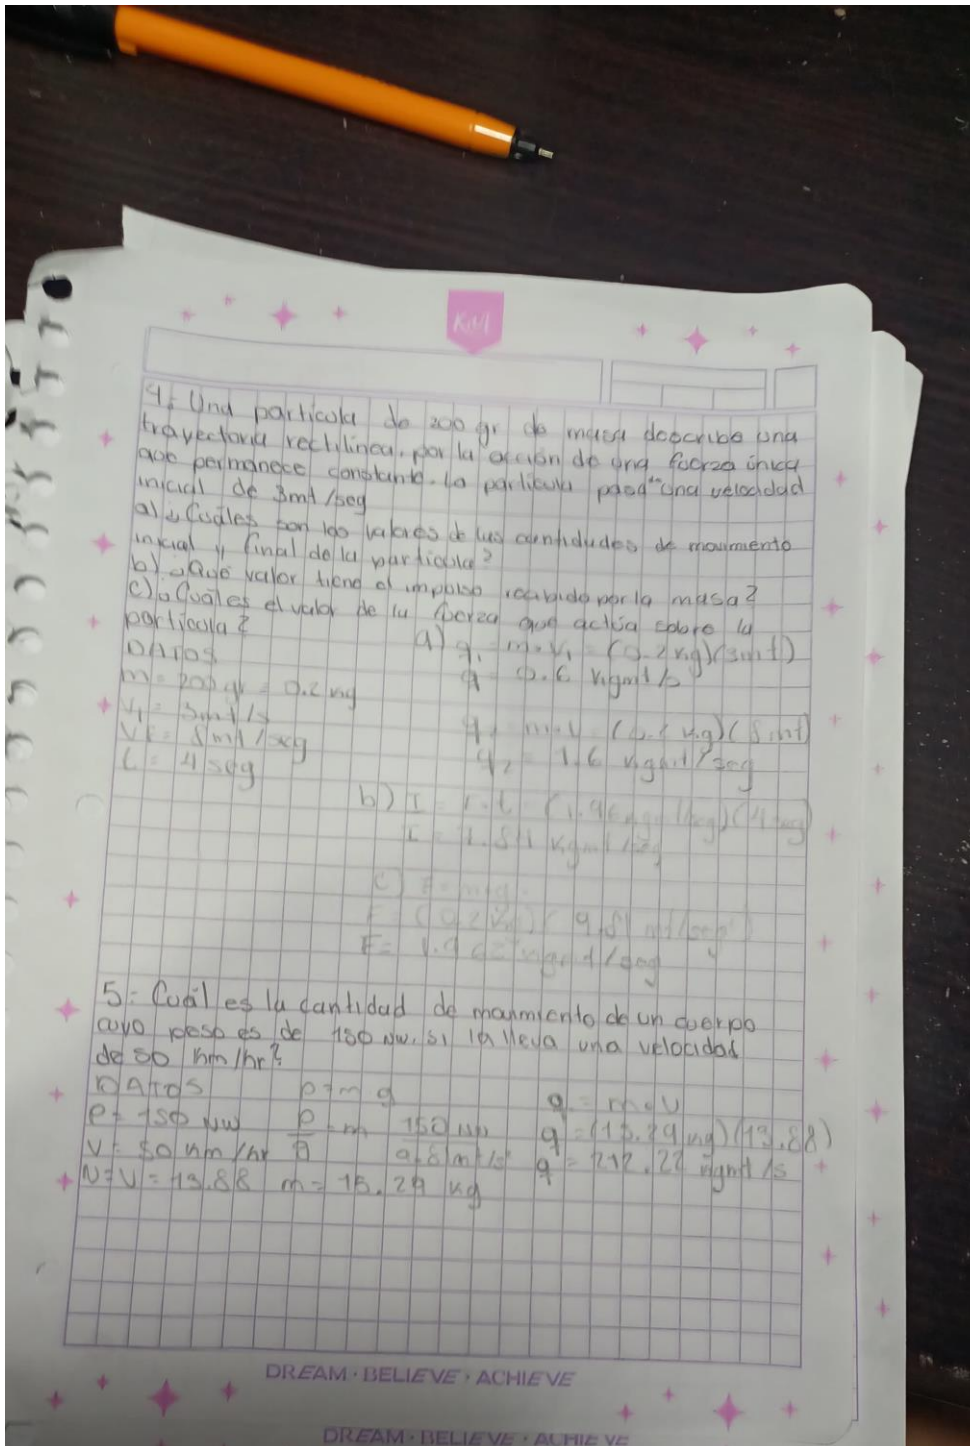 KM
4: Una particula de 200 gr de masa describe una
trayectoria rectilinea, por la acción de una fuerza única
que permanece constante. la particula pasa una velocidad
inicial de 3mt/seg
a) ¿Cuáles son los valores de las cantidades de movimiento
inicial y final de la particula?
b) ¿Qué valor tiene el impulso recibido por la masa?
c) ¿Cuál es el valor de la fuerza que actúa sobre la
particula?
DATOS
m = 200 gr = 0.2 kg
V1 = 3mt/s
Vf = 8mt/seg
t = 4 seg
a) q1 = m·V1 = (0.2 kg)(3mt)
q = 0.6 kgmt/s
q2 = 1.6 kgmt/seg
b) I =
c) F = m·g
F = (0.2 kg)(9.81 mt/seg²)
F =
5: Cuál es la cantidad de movimiento de un cuerpo
cuyo peso es de 150 Nw. si la lleva una velocidad
de 50 km/hr?
DATOS
P = 150 Nw
V = 50 km/hr
V = 13.88
p = m g
150 Nw
9.8 m/s²
m = 15.29 kg
q = m·v
q = (15.29 kg)(13.88)
q = 212.22 kgmt/s
DREAM · BELIEVE · ACHIEVE
DREAM · BELIEVE · ACHIEVE